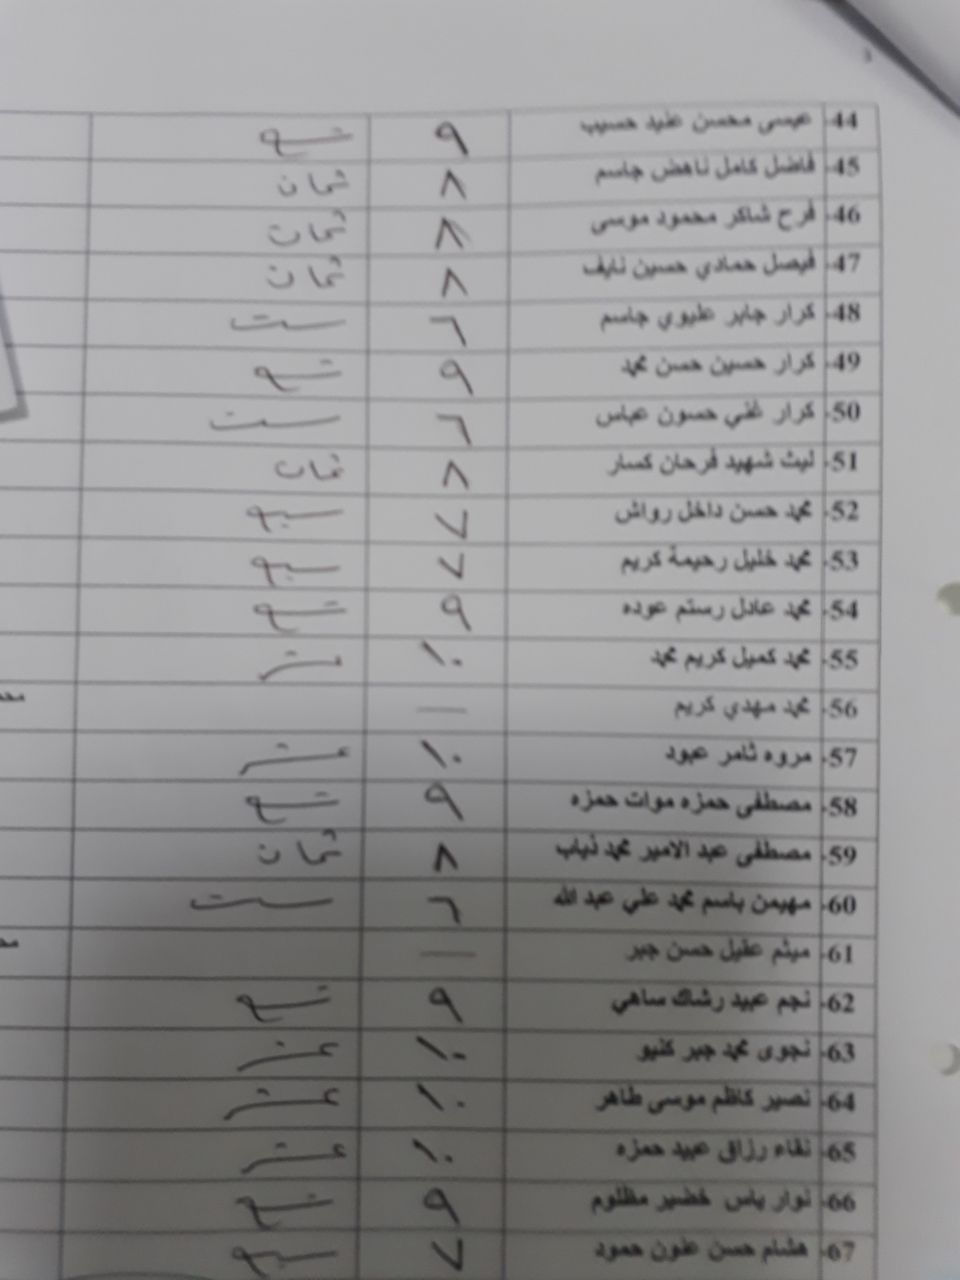 44- عيسى محسن عنيد حسيب ٩ تسع
45- فاضل كامل ناهض جاسم ٨ ثمان
46- فرح شاكر محمود موسى ٨ ثمان
47- فيصل حمادي حسين نايف ٨ ثمان
48- كرار جابر عليوي جاسم ٦ ست
49- كرار حسين حسن محمد ٩ تسع
50- كرار غني حسون عباس ٦ ست
51- ليث شهيد فرحان كسار ٨ ثمان
52- محمد حسن داخل رواش ٧ سبع
53- محمد خليل رحيمة كريم ٧ سبع
54- محمد عادل رستم عوده ٩ تسع
55- محمد كميل كريم محمد ١٠ عشر
56- محمد مهدي كريم —
57- مروه ثامر عبود ١٠ عشر
58- مصطفى حمزه موات حمزه ٩ تسع
59- مصطفى عبد الامير محمد ذياب ٨ ثمان
60- مهيمن باسم محمد علي عبد الله ٦ ست
61- ميثم عقيل حسن جبر —
62- نجم عبيد رشاك ساهي ٩ تسع
63- نجوى محمد جبر كنيو ١٠ عشر
64- نصير كاظم موسى طاهر ١٠ عشر
65- نقاء رزاق عبيد حمزه ١٠ عشر
66- نوار ياس خضير مظلوم ٩ تسع
67- هشام حسن عنون حمود ٧ سبع